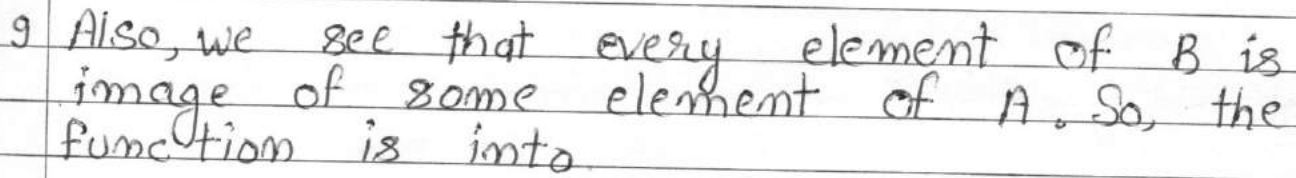 g Also, we see that every element of B is
image of some element of A. So, the
function is into